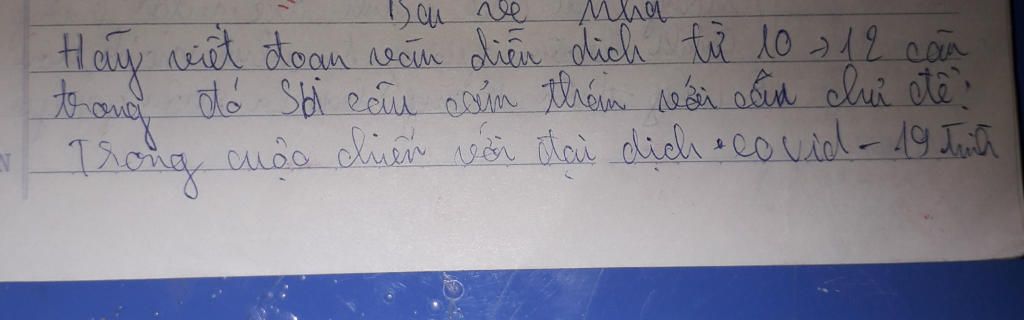 Bài về nhà
Hãy viết đoạn văn diễn dịch từ 10 → 12 câu
trong đó sd câu cảm thán với câu chủ đề:
Trong cuộc chiến với đại dịch covid - 19